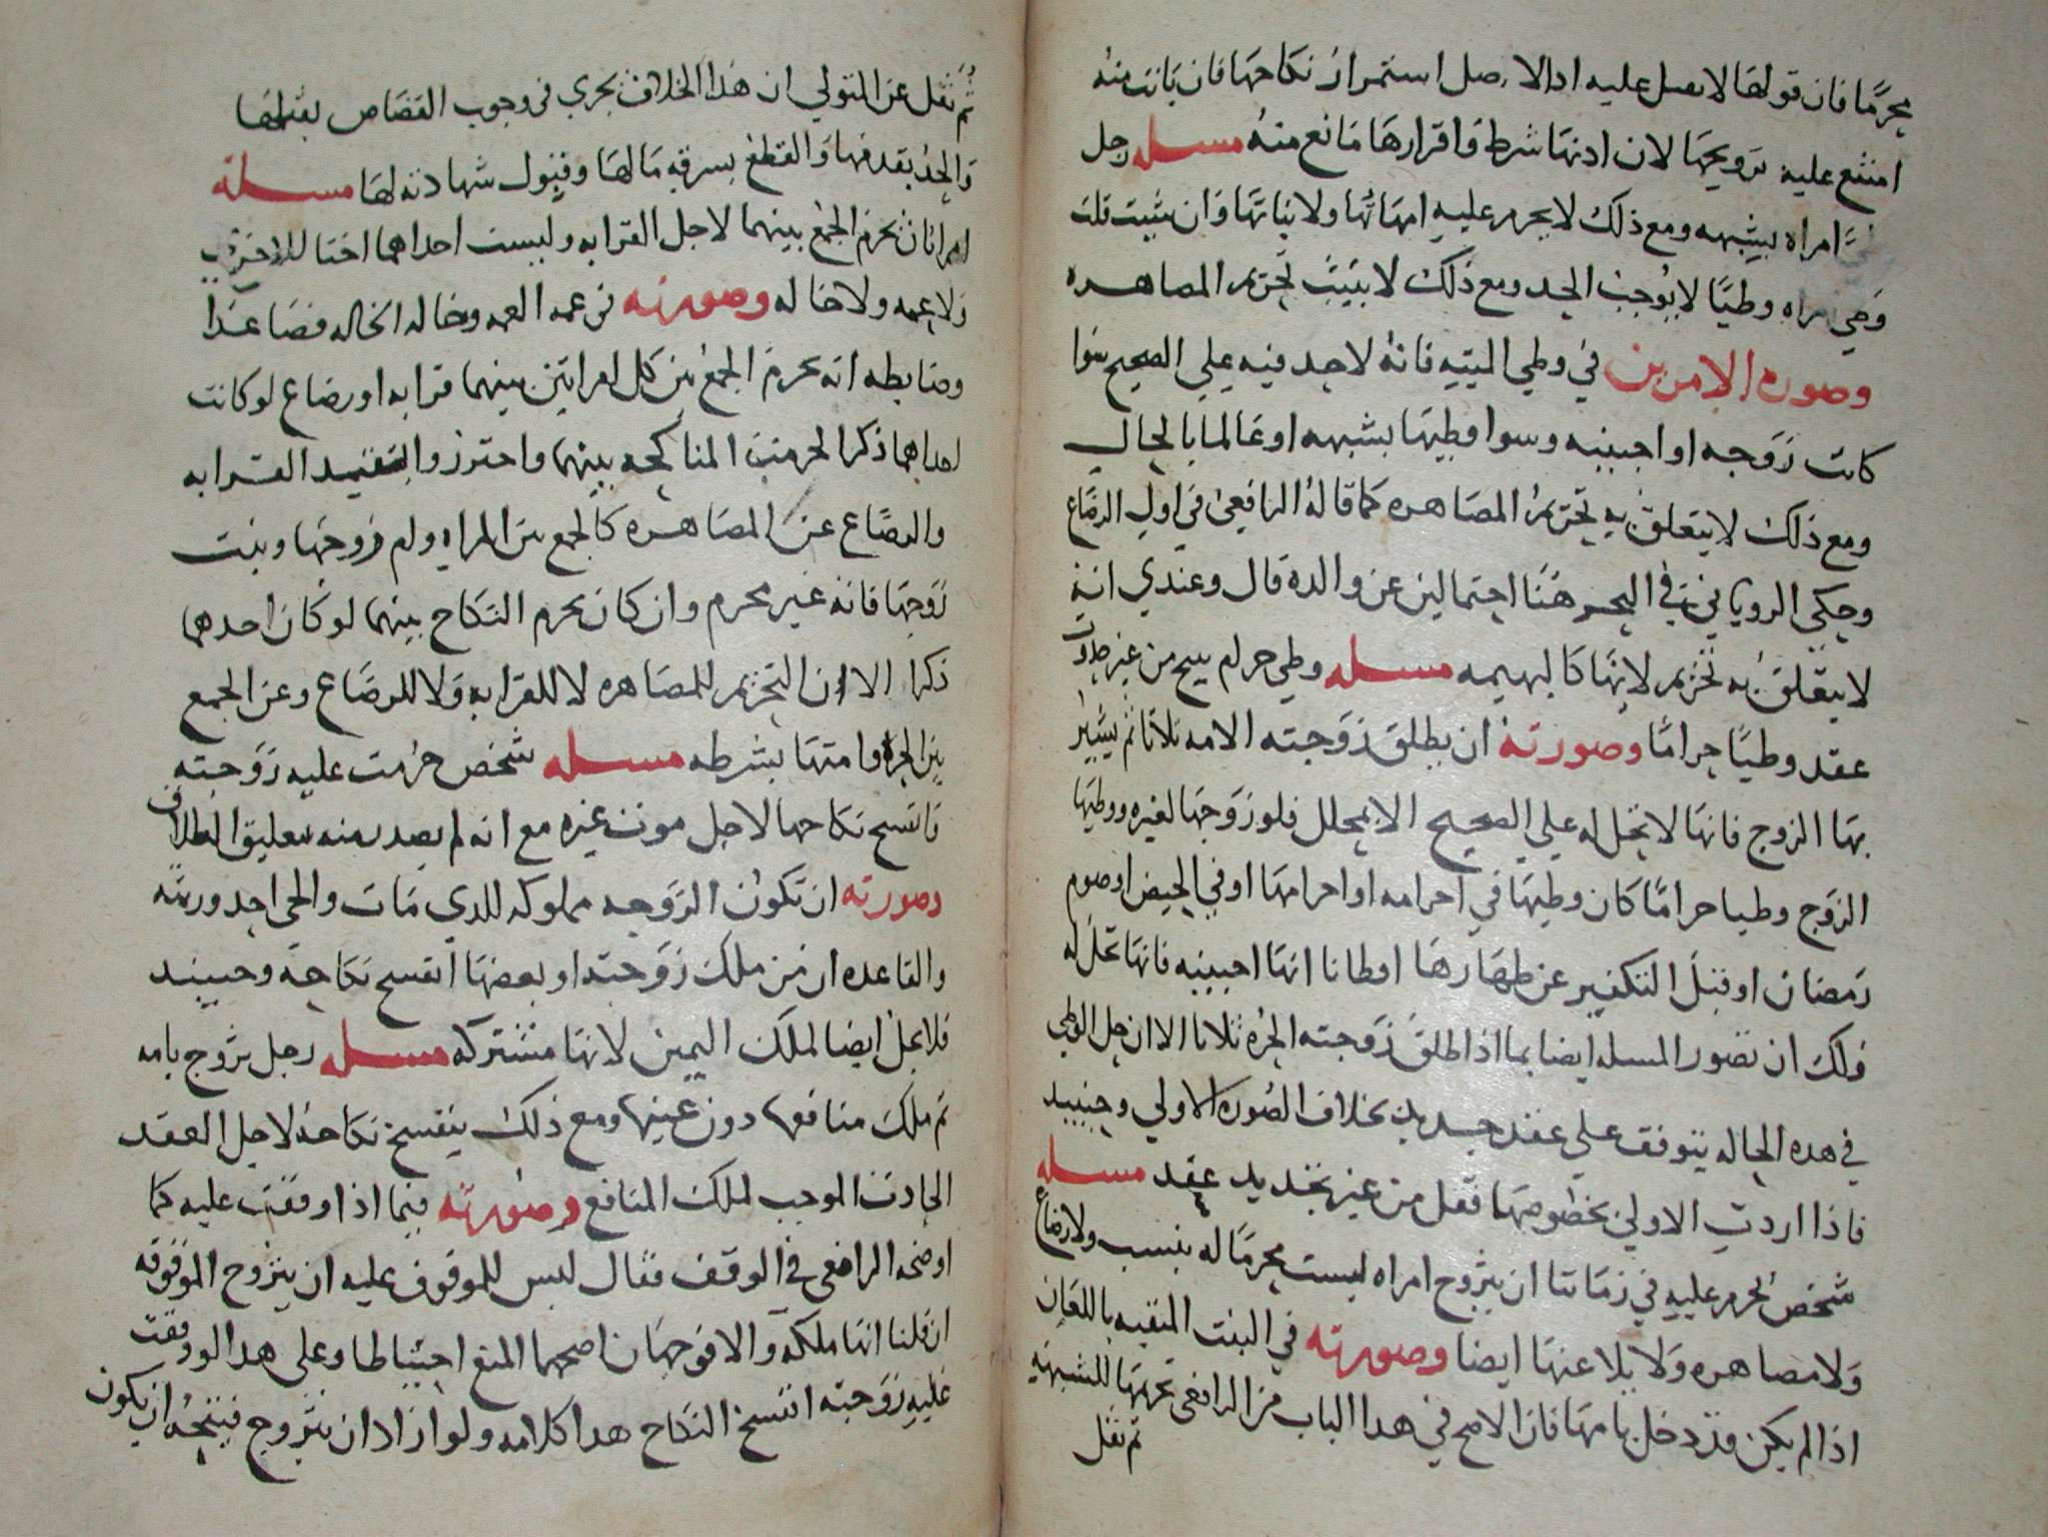 محرما فان قولها لا يقبل عليه اذ الاصل استمرار نكاحها فان بانت منه
امتنع عليه تزويجها لان اذنها شرط واقرارها مانع منه مسله رجل
امراه بشبهه ومع ذلك لا يحرم عليه امهاتها ولا بناتها وان شيت قلت
وطي امراه وطيا لا يوجب الحد ومع ذلك لا يثبت تحريم المصاهره
وصوره الامرين في وطي الميته فانه لا حد فيه علي الصحيح سوا
كانت زوجه او اجنبيه وسوا وطيها بشبهه او عالما بالحال
ومع ذلك لا يتعلق به تحريم المصاهره كما قاله الرافعي في اول الرضاع
وحكي الروياني في البحر هنا احتمالين عن والده قال وعندي انه
لا يتعلق به تحريم لانها كالبهيمه مسله وطي حرام يبيح من غير حدوث
عقد وطيا حراما وصورته ان يطلق زوجته الامه ثلاثا ثم يشتر
بها الزوج فانها لا تحل له علي الصحيح الا بمحلل فلو زوجها لغيره ووطيها
الزوج وطيا حراما كان وطيها في احرامه او احرامها او في الحيض او صوم
رمضان او قبل التكفير عن ظهارها او ظانا انها اجنبيه فانها تحل له
ولك ان تصور المسله ايضا بما اذا طلق زوجته الحره ثلاثا الا ان حل الوطي
في هده الحاله يتوقف علي عقد جديد بخلاف الصوره الاولي وحينيد
فاذا اردت الاولي بخصوصها فقل من غير تجديد عقد مسله
شخص يحرم عليه في زماننا ان يتزوج امراه ليست محرما له بنسب ولا رضاع
ولا مصاهره ولا يلاعنها ايضا وصورته في البنت المنفيه باللعان
اذا لم يكن قد دخل بامها فان الاصح في هدا الباب من الرافعي تحريمها للشبهه
ثم نقل
ثم نقل عن المتولي ان هذا الخلاف يجري في وجوب القصاص بقتلها
والحد بقدفها والقطع بسرقه مالها وقبول شهادته لها مسله
امراتان يحرم الجمع بينهما لاجل القرابه وليست احداهما اختا للاخري
ولا عمه ولا خاله وصورته في عمه العمه وخاله الخاله فصاعدا
وضابطه انه يحرم الجمع بين كل امراتين بينهما قرابه او رضاع لو كانت
احداهما ذكرا لحرمت المناكحه بينهما واحترزوا بتقييد القرابه
والرضاع عن المصاهره كالجمع بين المراه وام زوجها وبنت
زوجها فانه غير محرم وان كان يحرم النكاح بينهما لو كان احدهما
ذكرا الا ان التحريم للمصاهره لا للقرابه ولا للرضاع وعن الجمع
بين الحره وامتها بشرطه مسله شخص حرمت عليه زوجته
فانفسخ نكاحها لاجل موت غيره مع انه لم يصدر منه تعليق الطلاق
وصورته ان تكون الزوجه مملوكه للدي مات والحي احد ورثته
والقاعده ان من ملك زوجته او بعضها انفسخ نكاحه وحينيد
فلا تحل ايضا لملك اليمين لانها مشتركه مسله رجل تزوج بامه
ثم ملك منافعها دون عينها ومع ذلك ينفسخ نكاحه لاجل العقد
الحادث الموجب لملك المنافع وصورته فيما اذا وقفت عليه كما
اوضحه الرافعي في الوقف فقال ليس للموقوف عليه ان يتزوج الموقوفه
ان قلنا انها ملكه والا فوجهان اصحهما المنع احتياطا وعلي هدا لو وقفت
عليه زوجته انفسخ النكاح هدا كلامه ولو اراد ان يتزوج فيتجه ان يكون